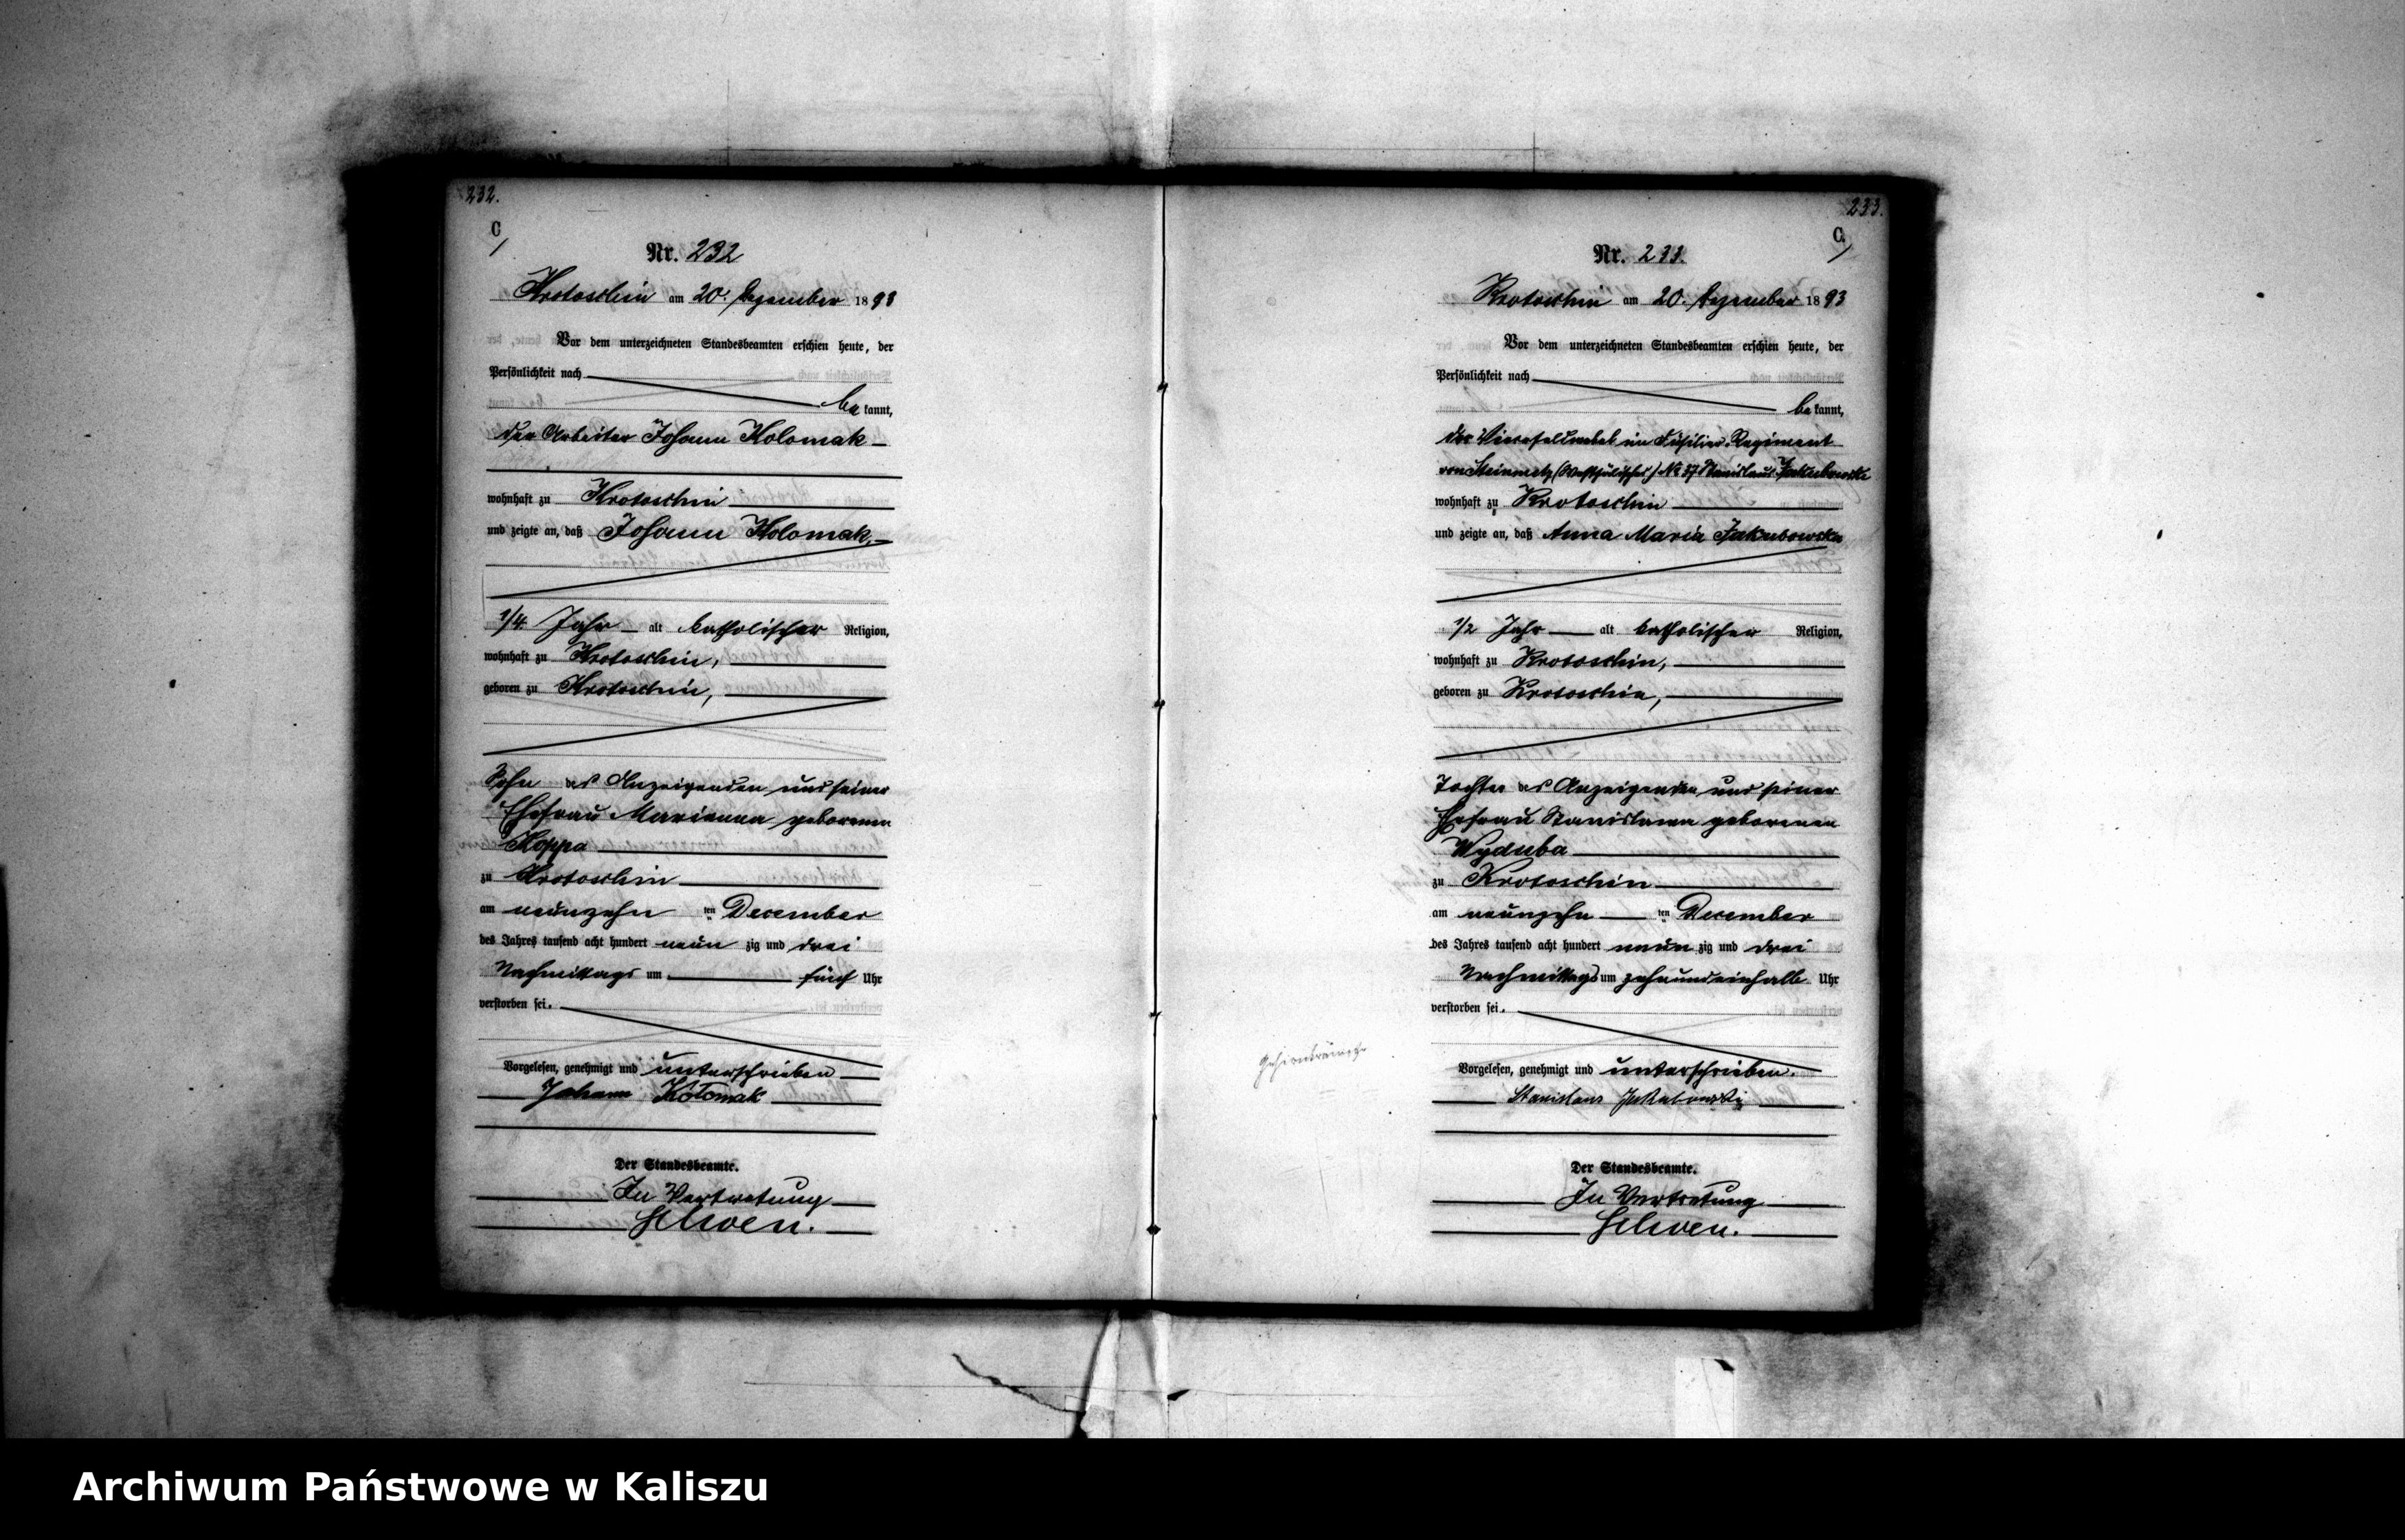 232.
C
Nr. 232
Krotoschin am 20. Dezember 1893
Vor dem unterzeichneten Standesbeamten erschien heute, der
Persönlichkeit nach
bekannt,
der Arbeiter Johann Kolomak
wohnhaft zu Krotoschin
und zeigte an, daß Johann Kolomak,
1/4 Jahr alt katholischer Religion,
wohnhaft zu Krotoschin,
geboren zu Krotoschin,
Sohn des Anzeigenden und seiner
Ehefrau Marianna geborenen
Koppa
zu Krotoschin
am neunzehnten December
des Jahres tausend acht hundert neunzig und drei
Nachmittags um fünf Uhr
verstorben sei.
Vorgelesen, genehmigt und unterschrieben
Johann Kołomak
Der Standesbeamte.
In Vertretung
233.
C.
Nr. 233.
Krotoschin am 20. Dezember 1893
Vor dem unterzeichneten Standesbeamten erschien heute, der
Persönlichkeit nach
bekannt,
der Vicefeldwebel im Füsilier-Regiment
von Steinmetz (Westfälisches) No 37 Stanislaus Jakubowski
wohnhaft zu Krotoschin
und zeigte an, daß Anna Maria Jakubowska
1/2 Jahr alt katholischer Religion,
wohnhaft zu Krotoschin,
geboren zu Krotoschin,
Tochter des Anzeigenden und seiner
Ehefrau Stanislawa geborenen
Wyduba
zu Krotoschin
am neunzehnten December
des Jahres tausend acht hundert neunzig und drei
Nachmittags um zehnundeinhalb Uhr
verstorben sei.
Gehirnkrämpfe
Vorgelesen, genehmigt und unterschrieben.
Stanislaus Jakubowski
Der Standesbeamte.
In Vertretung
Archiwum Państwowe w Kaliszu